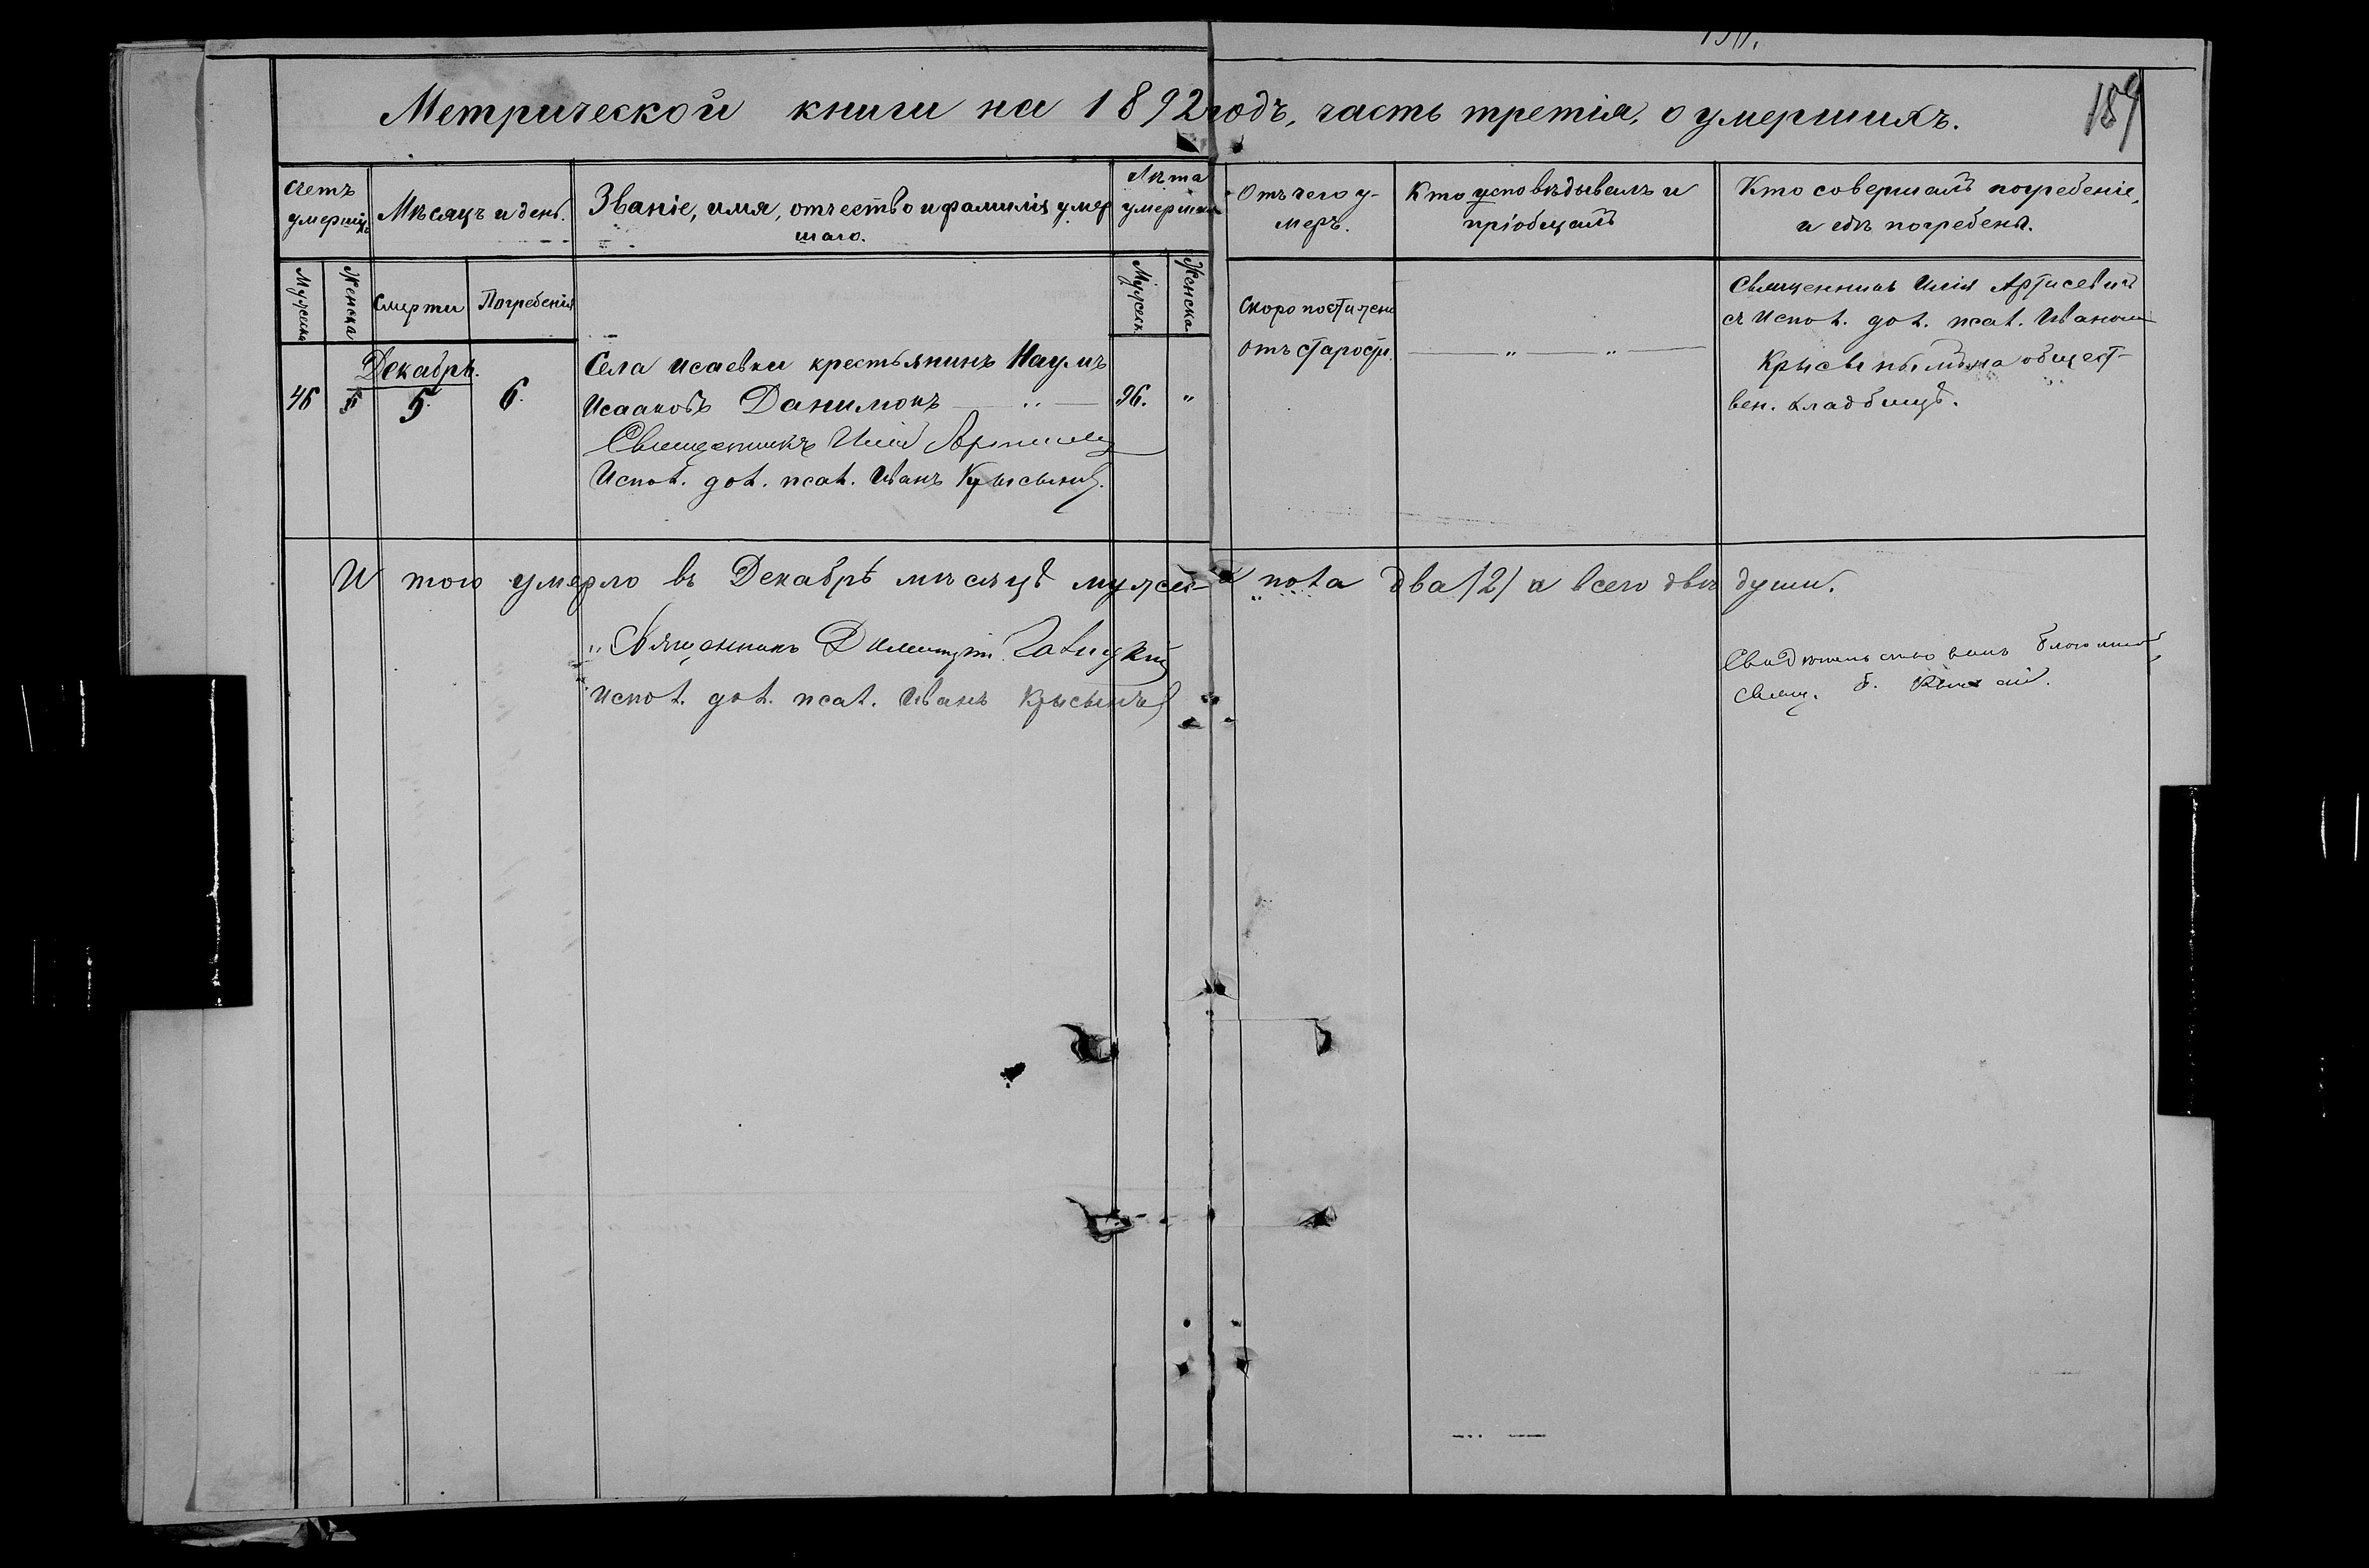 Метрической книги на 1892 годъ, часть третія, о умершихъ.
189
Счетъ умершихъ
Мѣсяцъ и день.
Званіе, имя, отчество и фамилія умершаго.
Лѣта умершаго
Отъ чего умеръ.
Кто исповѣдывалъ и пріобщалъ
Кто совершалъ погребеніе, и гдѣ погребенъ.
Мужеска
Женска
Смерти
Погребенія
Мужеск
Женска
Декабрь.
46
5.
6.
Села Исаевки крестьянинъ Наумъ
Исааковъ Данимокъ
96.
"
Скоропостижно
отъ старости.
Священникъ Илія
съ испол. дол. псал. Иваномъ
Крысинымъ на общест-
вен. кладбищѣ.
Священникъ Илія
Испол. дол. псал. Иванъ Крысинъ.
И того умерло въ Декабрѣ мѣсяцѣ мужеска пола два /2/ а всего двѣ души.
Священникъ Димитрій
Испол. дол. псал. Иванъ Крысинъ
Свидѣтельствовалъ
Свящ.